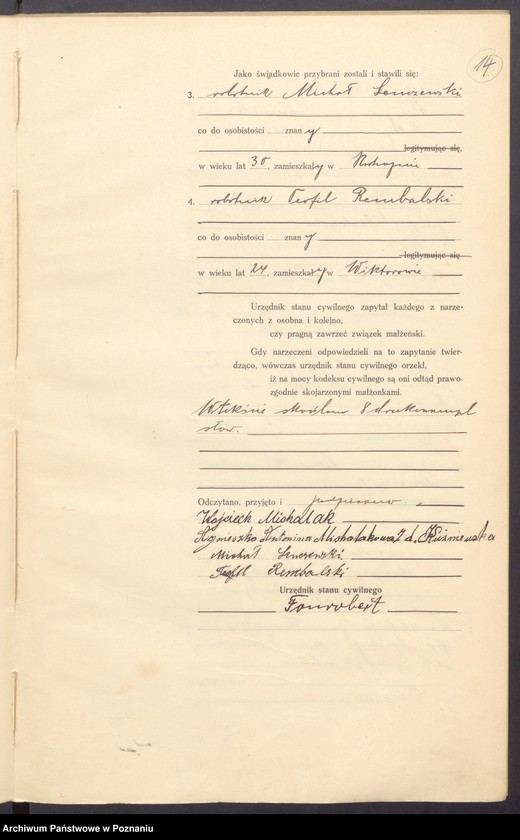 14.
Jako świadkowie przybrani zostali i stawili się:
3. robotnik Michał
co do osobistości znany
legitymując się,
w wieku lat 30, zamieszkały w
4. robotnik Teofil Rembalski
co do osobistości znany
legitymując się
w wieku lat 24, zamieszkały w Wiktorowie
Urzędnik stanu cywilnego zapytał każdego z narze-
czonych z osobna i kolejno,
czy pragną zawrzeć związek małżeński.
Gdy narzeczeni odpowiedzieli na to zapytanie twier-
dząco, wówczas urzędnik stanu cywilnego orzekł,
iż na mocy kodeksu cywilnego są oni odtąd prawo-
zgodnie skojarzonymi małżonkami.
W tekście skreślono 8 drukowanych
słów.
Odczytano, przyjęto i podpisano:
Wojciech Michalak
Agnieszka Antonina Michalakowa z d. Kuśniewska
Michał
Teofil Rembalski
Urzędnik stanu cywilnego
Fourobert
Archiwum Państwowe w Poznaniu